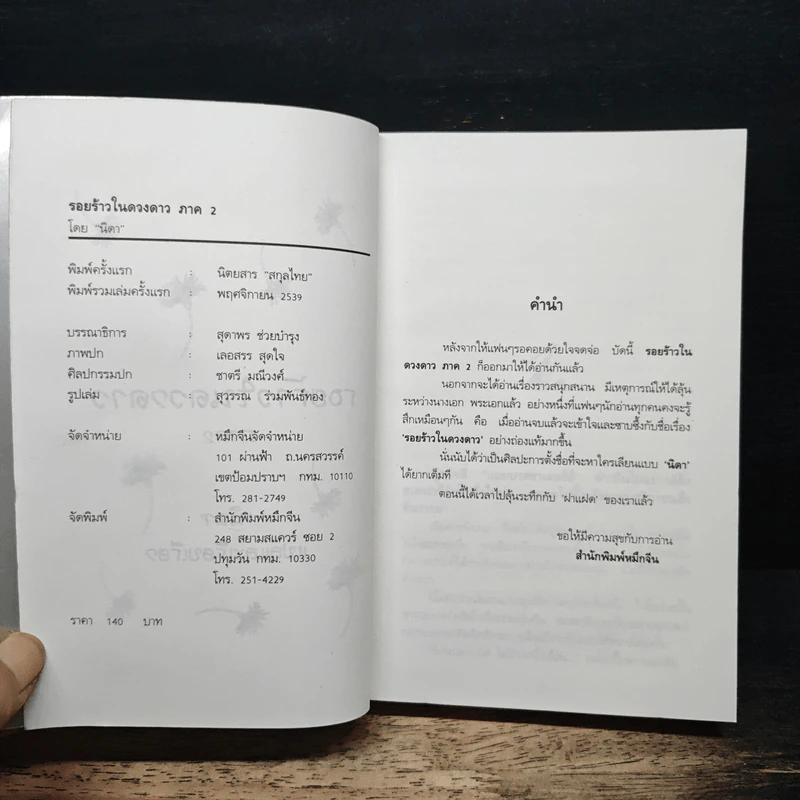 รอยร้าวในดวงดาว ภาค 2
โดย "นิดา"
พิมพ์ครั้งแรก : นิตยสาร "สกุลไทย"
พิมพ์รวมเล่มครั้งแรก : พฤศจิกายน 2539
บรรณาธิการ : สุดาพร ช่วยบำรุง
ภาพปก : เลอสรร สุดใจ
ศิลปกรรมปก : ชาตรี มณีวงศ์
รูปเล่ม : สุวรรณ ร่วมพันธ์ทอง
จัดจำหน่าย : หมึกจีนจัดจำหน่าย
101 ผ่านฟ้า ถ.นครสวรรค์
เขตป้อมปราบฯ กทม. 10110
โทร. 281-2749
จัดพิมพ์ : สำนักพิมพ์หมึกจีน
248 สยามสแควร์ ซอย 2
ปทุมวัน กทม. 10330
โทร. 251-4229
ราคา 140 บาท
คำนำ
หลังจากให้แฟนๆรอคอยด้วยใจจดจ่อ บัดนี้ รอยร้าวใน
ดวงดาว ภาค 2 ก็ออกมาให้ได้อ่านกันแล้ว
นอกจากจะได้อ่านเรื่องราวสนุกสนาน มีเหตุการณ์ให้ได้ลุ้น
ระหว่างนางเอก พระเอกแล้ว อย่างหนึ่งที่แฟนๆนักอ่านทุกคนคงจะรู้
สึกเหมือนๆกัน คือ เมื่ออ่านจบแล้วจะเข้าใจและซาบซึ้งกับชื่อเรื่อง
'รอยร้าวในดวงดาว' อย่างถ่องแท้มากขึ้น
นั่นนับได้ว่าเป็นศิลปะการตั้งชื่อที่จะหาใครเลียนแบบ 'นิดา'
ได้ยากเต็มที
ตอนนี้ได้เวลาไปลุ้นระทึกกับ 'ฝาแฝด' ของเราแล้ว
ขอให้มีความสุขกับการอ่าน
สำนักพิมพ์หมึกจีน